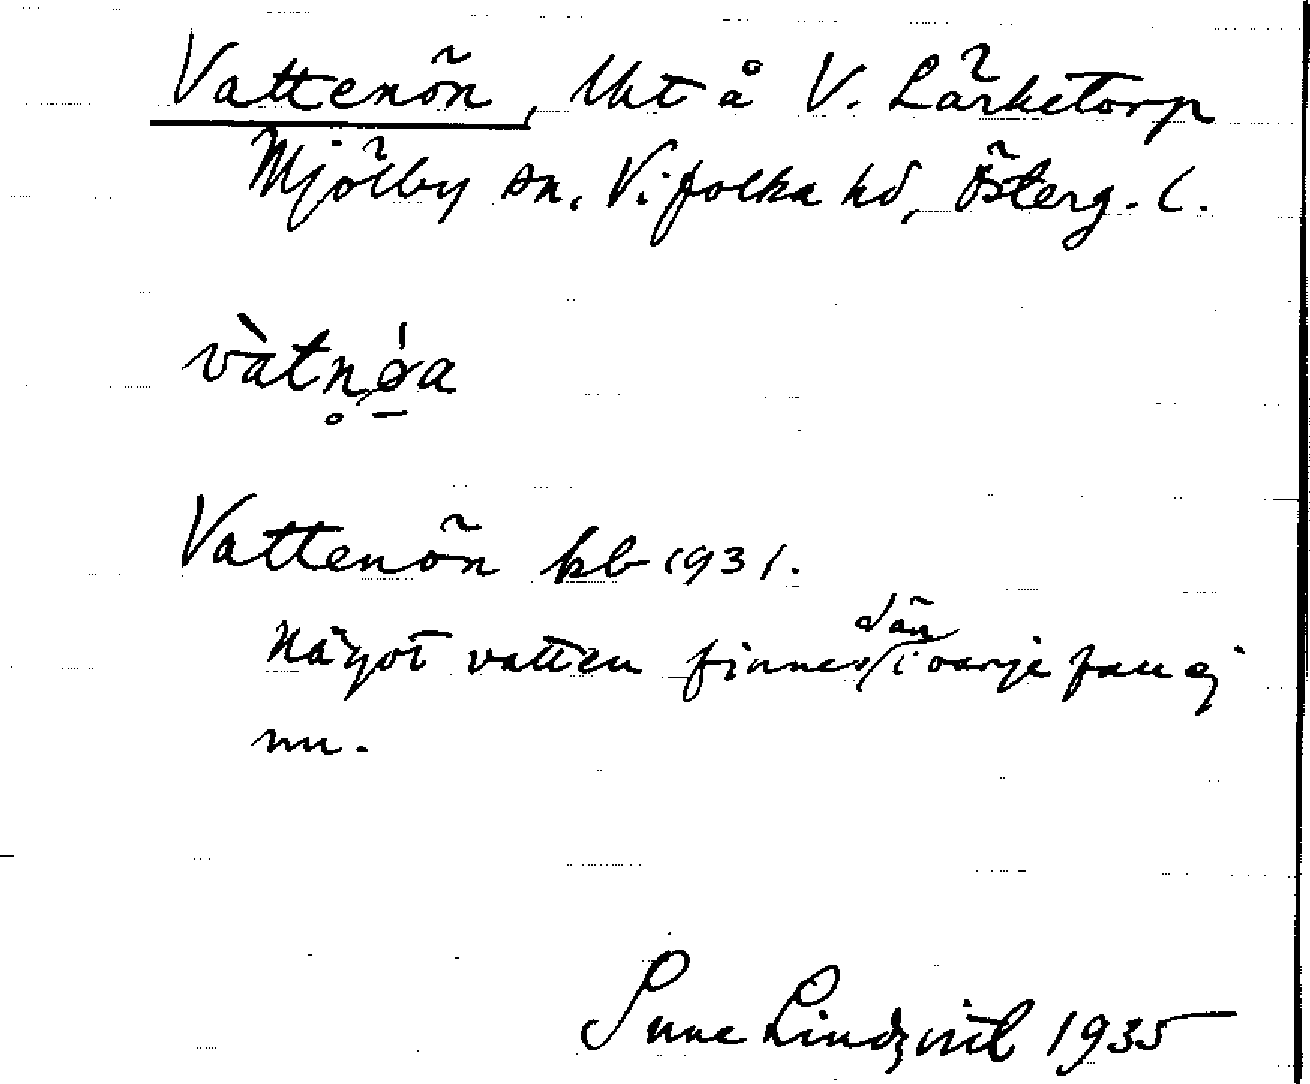 Vattenön, Uht å V. Lärketorp
Mjölby sn. Vifolka hd, Österg. l.
vàtn̥ǿ̱a
Vattenön kb 1931.
Något vatten finnes där i varje fall ej
nu.
Sune Lindqvist 1935